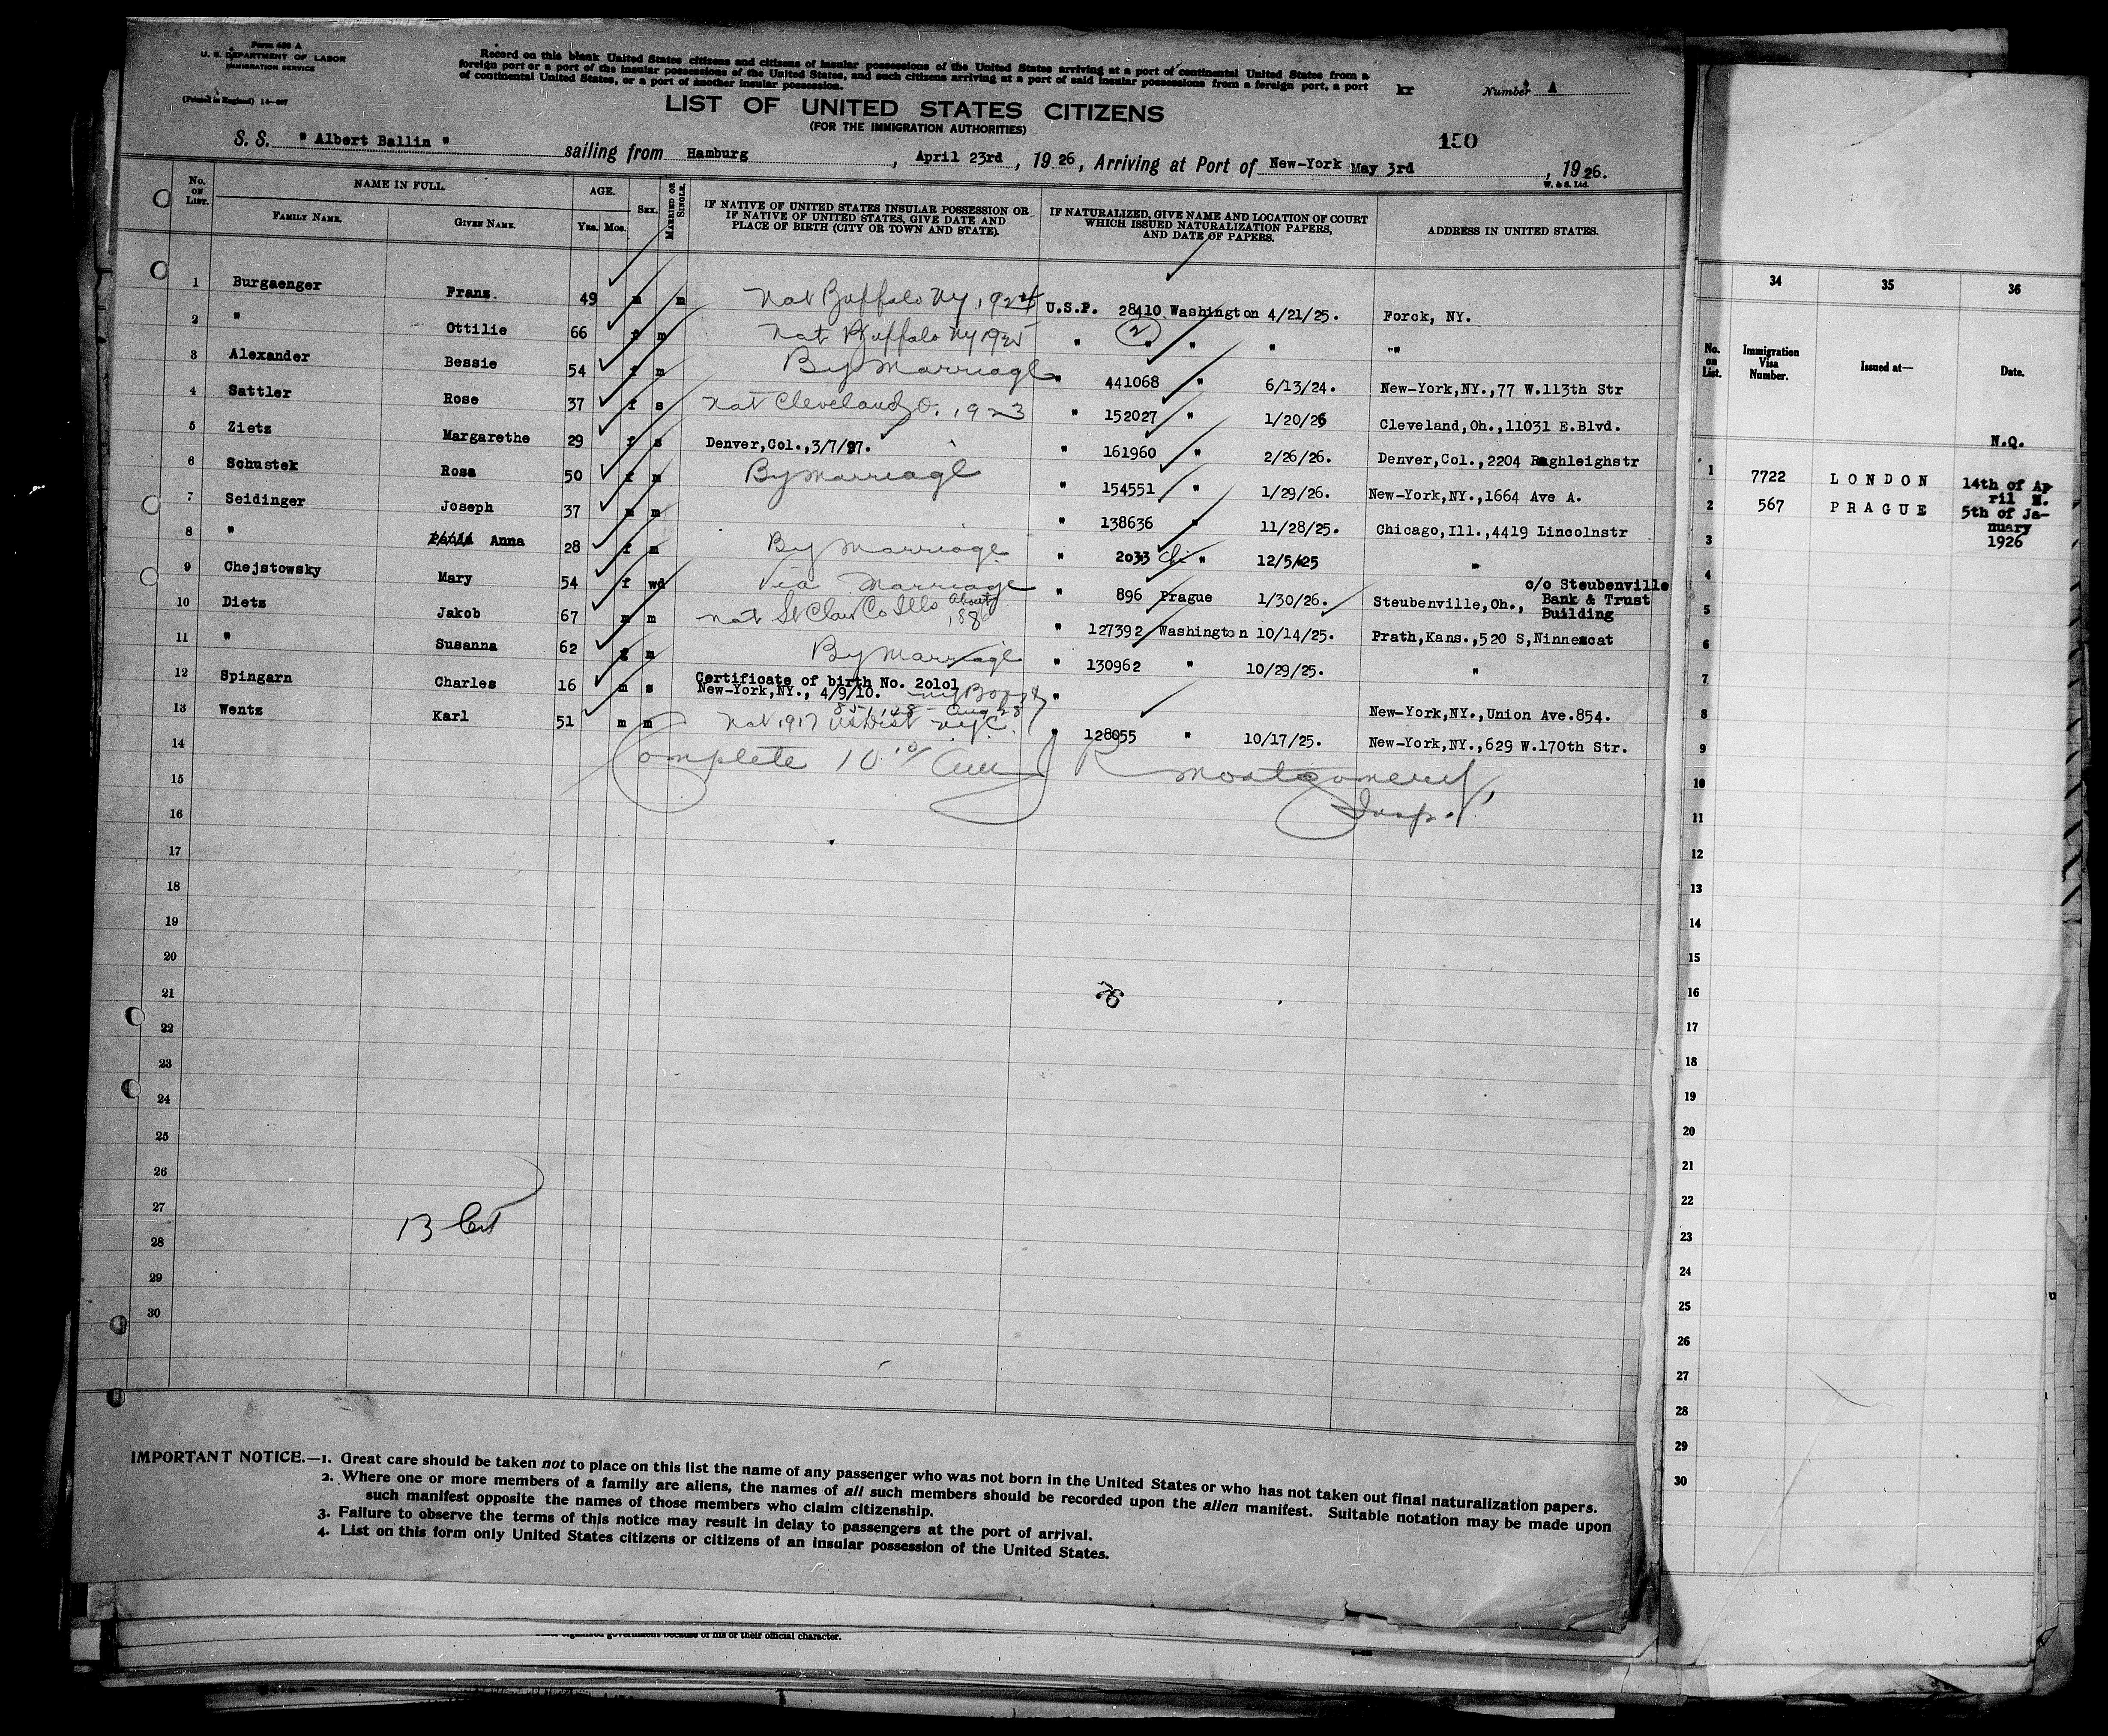 Form 630 A
U. S. DEPARTMENT OF LABOR
IMMIGRATION SERVICE
(Printed in England) 14—207
Record on this blank United States citizens and citizens of insular possessions of the United States arriving at a port of continental United States from a
foreign port or a port of the insular possessions of the United States, and such citizens arriving at a port of said insular possessions from a foreign port, a port
of continental United States, or a port of another insular possession.
kr
Number A
LIST OF UNITED STATES CITIZENS
(FOR THE IMMIGRATION AUTHORITIES)
150
S. S. " Albert Ballin " sailing from Hamburg, April 23rd, 1926, Arriving at Port of New-York May 3rd, 1926.
W. & S. Ltd.
No. on List. NAME IN FULL. AGE. Sex. Married or Single. IF NATIVE OF UNITED STATES INSULAR POSSESSION OR IF NATIVE OF UNITED STATES, GIVE DATE AND PLACE OF BIRTH (CITY OR TOWN AND STATE). IF NATURALIZED, GIVE NAME AND LOCATION OF COURT WHICH ISSUED NATURALIZATION PAPERS, AND DATE OF PAPERS. ADDRESS IN UNITED STATES.
Family Name. Given Name. Yrs. Mos.
1 Burgaenger Franz. 49 m m Nat Buffalo NY, 1924 U.S.P. 28410 Washington 4/21/25. Forck, NY.
2 " Ottilie 66 f m Nat Buffalo NY 1925 " (2) " " " ""
3 Alexander Bessie 54 f m By Marriage " 441068 " 6/13/24. New-York,NY.,77 W.113th Str
4 Sattler Rose 37 f s Nat Cleveland O. 1923 " 152027 " 1/20/26 Cleveland,Oh.,11031 E.Blvd.
5 Zietz Margarethe 29 f s Denver,Col.,3/7/97. " 161960 " 2/26/26. Denver,Col.,2204 Raghleighstr
6 Schustek Rosa 50 f m By Marriage " 154551 " 1/29/26. New-York,NY.,1664 Ave A.
7 Seidinger Joseph 37 m m " 138636 " 11/28/25. Chicago,Ill.,4419 Lincolnstr
8 " Anna 28 f m By Marriage " 2033 Chi " 12/5/25 "
9 Chejstowsky Mary 54 f wd Via Marriage " 896 Prague 1/30/26. Steubenville,Oh., c/o Steubenville Bank & Trust Building
10 Dietz Jakob 67 m m Nat St Clair Co Ills About 188 " 127392 Washington 10/14/25. Prath,Kans.,520 S,Ninnescat
11 " Susanna 62 f m By Marriage " 130962 " 10/29/25. "
12 Spingarn Charles 16 m s Certificate of birth No. 20101 New-York,NY., 4/9/10. " New-York,NY.,Union Ave.854.
13 Wentz Karl 51 m m Nat 1917 US Dist NYC. " 128055 " 10/17/25. New-York,NY.,629 W.170th Str.
Complete 10 J R Montgomery,
Insp.
14
15
16
17
18
19
20
21
22
23
24
25
26
27
28
29
30
76
13
IMPORTANT NOTICE.—1. Great care should be taken not to place on this list the name of any passenger who was not born in the United States or who has not taken out final naturalization papers.
2. Where one or more members of a family are aliens, the names of all such members should be recorded upon the alien manifest. Suitable notation may be made upon
such manifest opposite the names of those members who claim citizenship.
3. Failure to observe the terms of this notice may result in delay to passengers at the port of arrival.
4. List on this form only United States citizens or citizens of an insular possession of the United States.
organised government because of his or their official character.
34 35 36
No. on List. Immigration Visa Number. Issued at— Date.
N.Q.
1 7722 LONDON 14th of Ap
ril N.
2 567 PRAGUE 5th of Ja-
nuary
3 1926
4
5
6
7
8
9
10
11
12
13
14
15
16
17
18
19
20
21
22
23
24
25
26
27
28
29
30